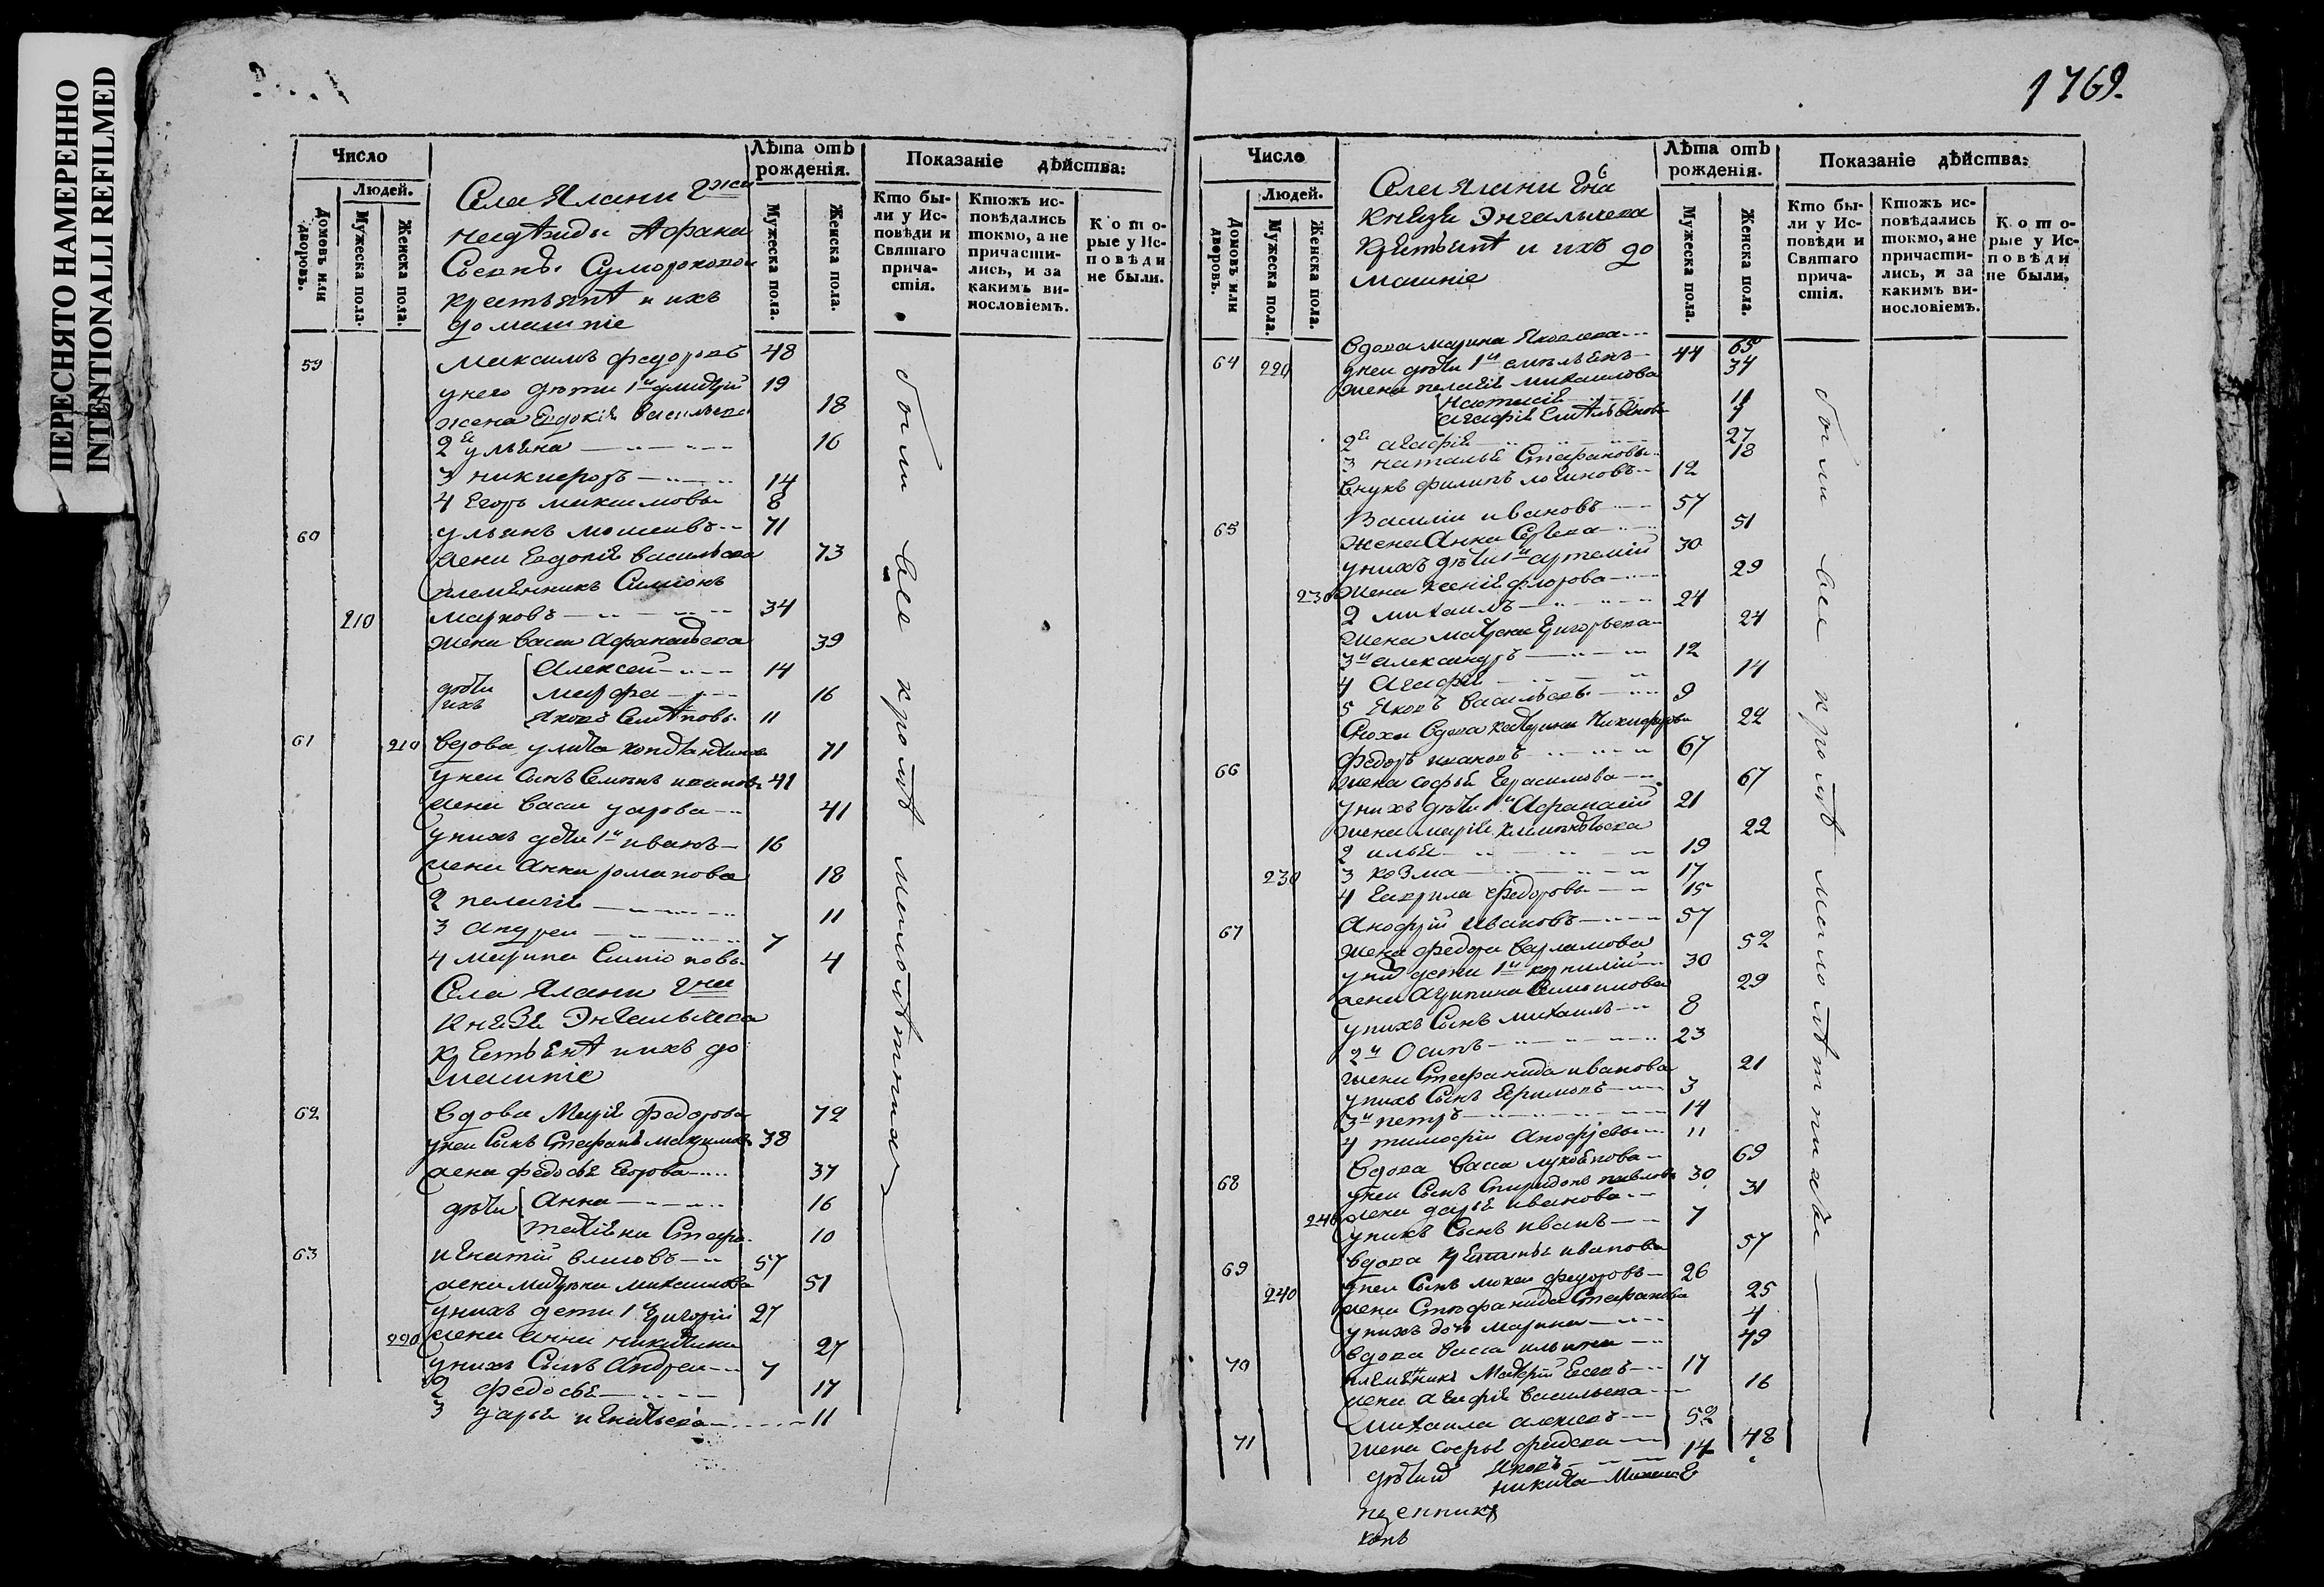 ПЕРЕСНЯТО НАМЕРЕННО
INTENTIONALLI REFILMED
Число
Людей.
Домовъ или дворовъ.
Мужеска пола.
Женска пола.
Села Ялани Гжи
надежды Афана
Сумороковои
крестьянѣ и ихъ
домашніе
Лѣта отъ рожденія.
Мужеска пола.
Женска пола.
Показаніе дѣйства:
Кто бы-
ли у Ис-
повѣди и
Святаго
прича-
стія.
Ктожъ ис-
повѣдались
токмо, а не
причасти-
лись, и за
какимъ ви-
нословіемъ.
Кото-
рые у Ис-
повѣди
не были.
59 Максимъ федоровъ 48
у него дѣти 1й дмитрій 19
жена Евдокія васильева 18
2я ульяна 16
3 никифоръ 14
4 Егоръ максимовы 8
60 ульянъ 71
жена Евдокія васильева 73
племянникъ Симіонъ
210 марковъ 34
жена васа Афанасьева 39
Алексеи 14
дѣти ихъ марфа 16
Яковъ 11
61 210 Вдова улита константинова 71
у неи сынъ Семенъ ивановъ 41
жена васа уарова 41
у нихъ дѣти 1й иванъ 16
жена Анна романова 18
2 пелагія 11
3 андреи 7
4 марина Симіоновы 4
Села Ялани Гна
Князя Энгалычева
крестьянѣ и ихъ до
машніе
62 Вдова Марія федорова 72
у неи сынъ Стефанъ максимовъ 38
жена федосья Егорова 37
дѣти Анна 16
татіяна Стефа. 10
63 игнатіи 57
жена матрона михаилова 51
у нихъ дети 1й григоріи 27
220 жена анна никитина 27
у нихъ сынъ Андреи 7
2 федосья 17
3 дарья игнатьева 11
были все кромѣ малолѣтныхъ
1769.
Число
Людей.
Домовъ или дворовъ.
Мужеска пола.
Женска пола.
Села Ялани Гна
Князя Энгалычева
крестьянѣ и ихъ до
машніе
Лѣта отъ рожденія.
Мужеска пола.
Женска пола.
Показаніе дѣйства:
Кто бы-
ли у Ис-
повѣди и
Святаго
прича-
стія.
Ктожъ ис-
повѣдались
токмо, а не
причасти-
лись, и за
какимъ ви-
нословіемъ.
Кото-
рые у Ис-
повѣди
не были.
64 Вдова марина Яковлева 65
220 у неи дѣти 1й емельянъ 44
жена пелагія михаилова 34
настасія 11
агафія Емельяновы 7
2я агафія 27
3 наталья Стефановы 18
внукъ филипъ логиновъ 12
65 Василіи ивановъ 57
жена Анна 51
у нихъ дѣти 1й артеміи 30
230 жена ксенія флорова 29
2 михаилъ 24
жена матрена григорьева 24
3й александръ 12
4 Агафія 14
5 Яковъ васильевы 9
Сноха вдова катерина Никифорова 22
66 Федоръ ивановъ 67
жена софья герасимова 67
у нихъ дѣти 1й Афанасіи 21
жена марія климентьева 22
2 илья 19
230 3 козма 17
4 гаврила федоровы 15
67 Анофріи Ивановъ 57
жена федора варламова 52
дети 1й корниліи 30
жена агрипина 29
у нихъ сынъ михаилъ 8
2й Осипъ 23
жена Стефанида иванова 21
у нихъ сынъ 3
3й петръ 14
4 тимофіи Анофріевы 11
68 Вдова васа лукоянова 69
у неи сынъ Спиридонъ павловъ 30
240 жена дарья иванова 31
у нихъ сынъ иванъ 7
69 Вдова иванова 57
240 у неи сынъ мокеи федоровъ 26
жена Стефанида Стефанова 25
у нихъ дочь марина 4
70 вдова васса ильина 49
племянникъ 17
жена агафія васильева 16
71 михаила алексеевъ 52
жена софья 48
дѣти Яковъ 14
никита 8
были все кромѣ малолѣтныхъ